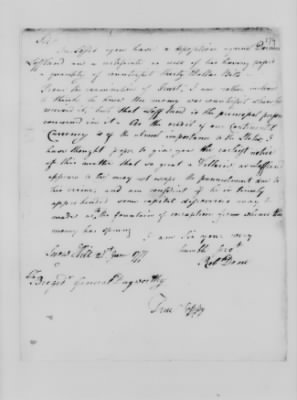 Sir
Inclosed you have a deposition against
Loffland and a certificate in case of his having passed
a quantity of counterfeit thirty Dollar Bills
From the examination of I am rather inclined
to think he knew the money was counterfeit when he
received it, but that Loffland is the principal person
concerned in it. As the credit of our Continental
Currency is of the utmost importance to the States, I
have thought proper to give you the earliest notice
of this matter that so great a Villain as Loffland
appears to be may not escape the punishment due to
his crime, and am confident if he is timely
apprehended some capital discoveries may be
made as to the fountain of corruption from whence this
money has sprung
I am Sir your very
humble
Snow Hill 25th 1777
To Brigdr General Dagworthy
True Coppy